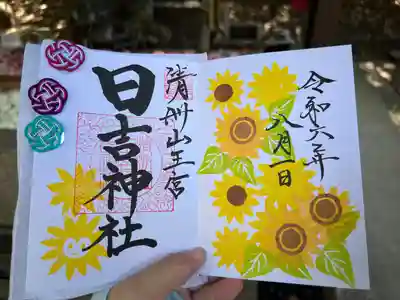 令和六年
八月一日
清州山王宮
日吉神社